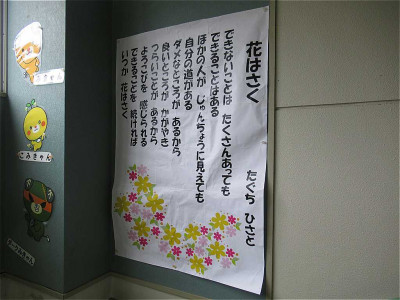 花はさく
たぐち ひさと
できないことは たくさんあっても
できることはある
ほかの人が じゅんちょうに見えても
自分の道がある
ダメなところが あるから
良いところが かがやき
つらいことが あるから
よろこびを 感じられる
できることを 続ければ
いつか 花はさく
こみきゃん